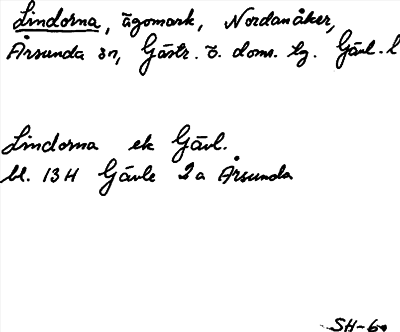 Lindorna, ägomark, Nordanåker,
Årsunda sn, Gästr. ö. doms. tg. Gävl. l
Lindorna ek Gävl.
bl. 13H Gävle 2a Årsunda
SH-60